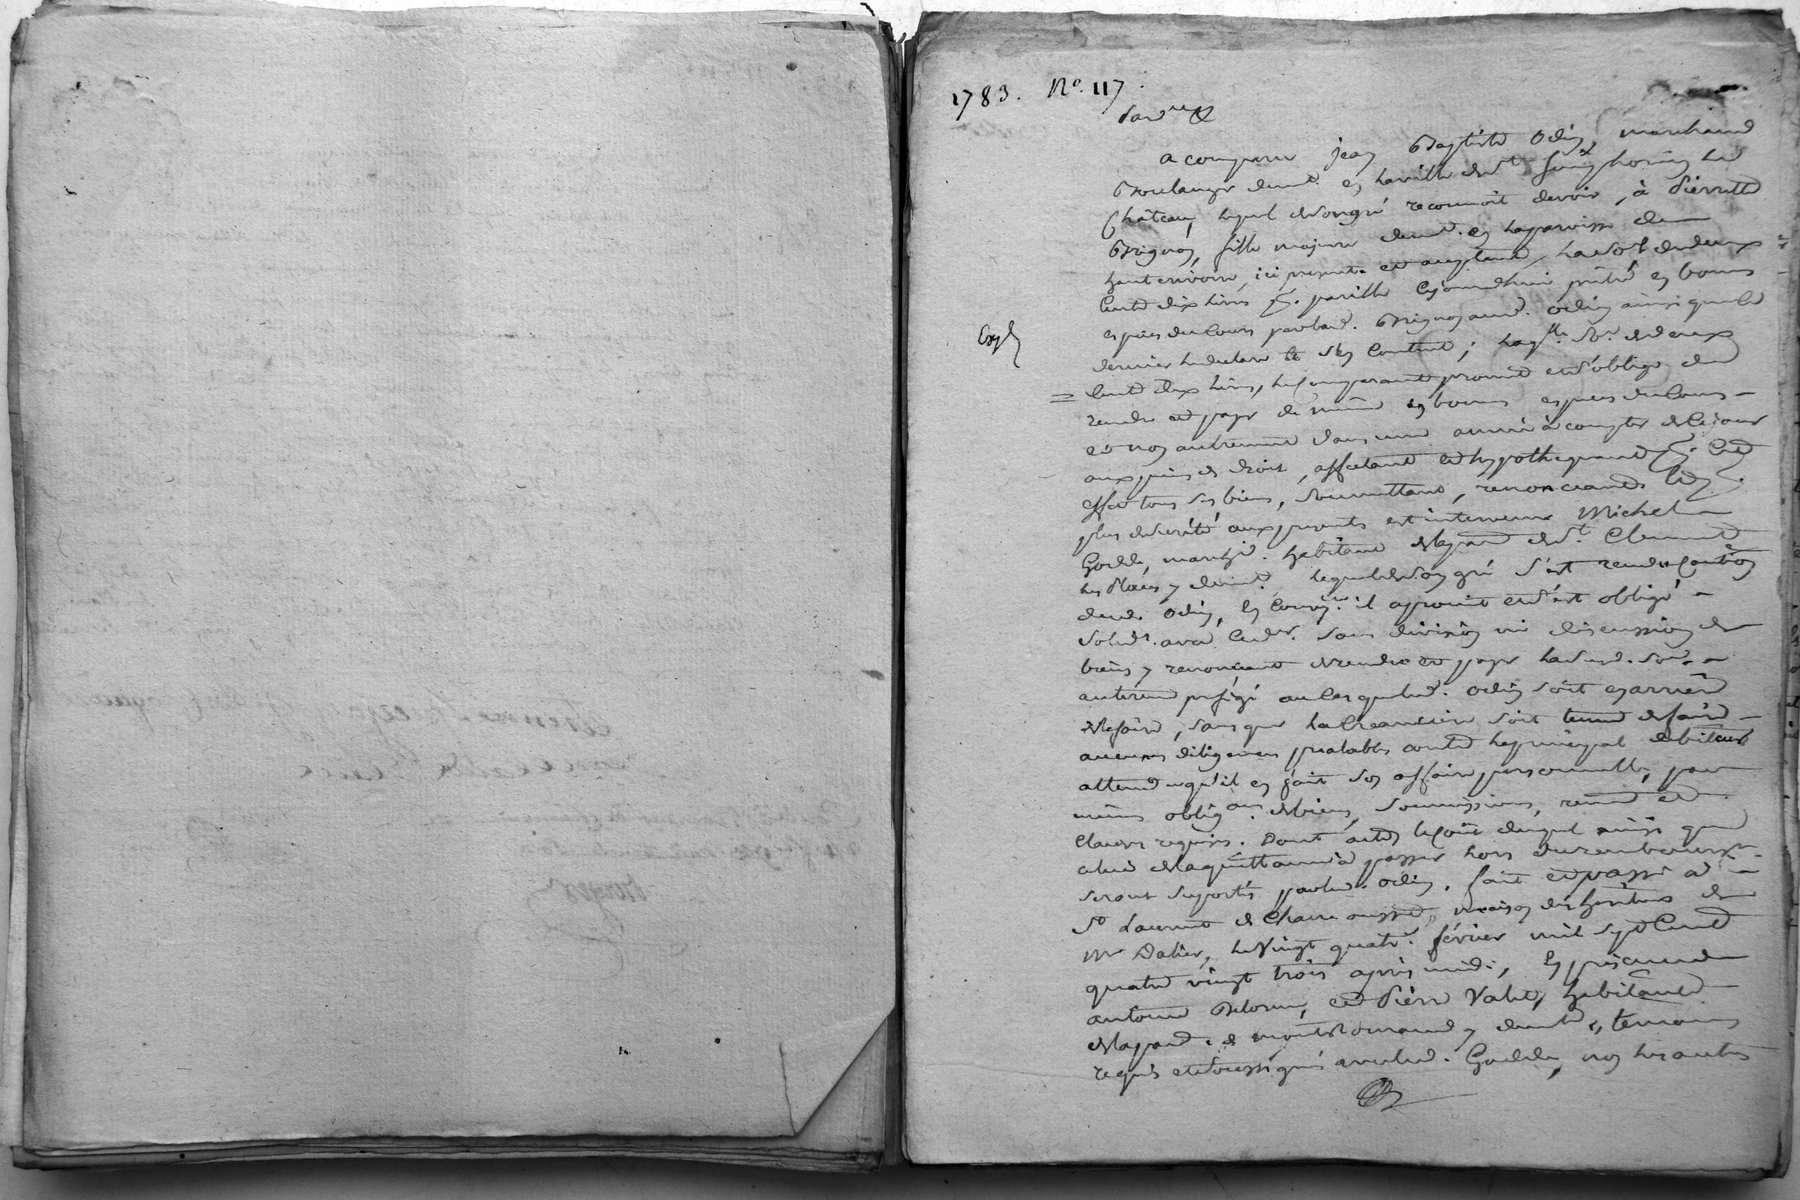 1783. No. 117.
Pardt &
a comparu jean Baptiste Odin marchand
Boulanger demt. en la ville de St. Simphorien le
Château, lequel de son gré reconnoit devoir, à Pierrette
Brignon, fille majeure demt. en la paroisse de
hauterivoire, ici presente et acceptante, la so. de deux
Cents dix livres pareille cejourdhui prêté en bonnes
especes du Cours par lad. Brignon aud. Odin ainsi que le
Expé
dernier le declare et s'en Contente; laq.lle So. de deux
Cents dix livres, le Comparant promet et s'oblige de
rendre et payer de même en bonnes especes du Cours
et non autrement dans une année à compter de Cejour
aux peines de droit, affectant et hypothequant Cet
effet tous ses biens, soumettant, renonceant
plus de sureté aux presentes est intervenu Michel
Goddе, march. habitant de la par. de St. Clement
les Places y demt. lequel de son gré s'est rendu Caution
dud. Odin, En Conséq. il a promis et s'est obligé
Solid.t avec led. Sans division ni discussion de
biens y renonçant de rendre et payer la susd. So.
au terme prefigé au Cas que led. Odin soit en arriere
de le faire, sans que la Creanciere soit tenue de faire
aucunes diligences prealables contre le principal debiteur
attendu qu'il en fait son affaire personnelle, par
mêmes oblig.ons de biens, soumissions, renon. et
Clauses requises. Dont acte, le Coût duquel ainsi que
celui de la quittance à passer lors du remboursemt.
seront suportés par led. Odin. fait et passé a
St. Laurent de Chamousset, maison des heritiers de
Mr Dalier, le Vingt quatre février mil sept Cent
quatre vingt trois après midi, En presence de
antoine Delorme, et Pierre Valet, habitants
de la par. de montromand y demts, temoins
requis et soussignés avec led. Godde, non les autres